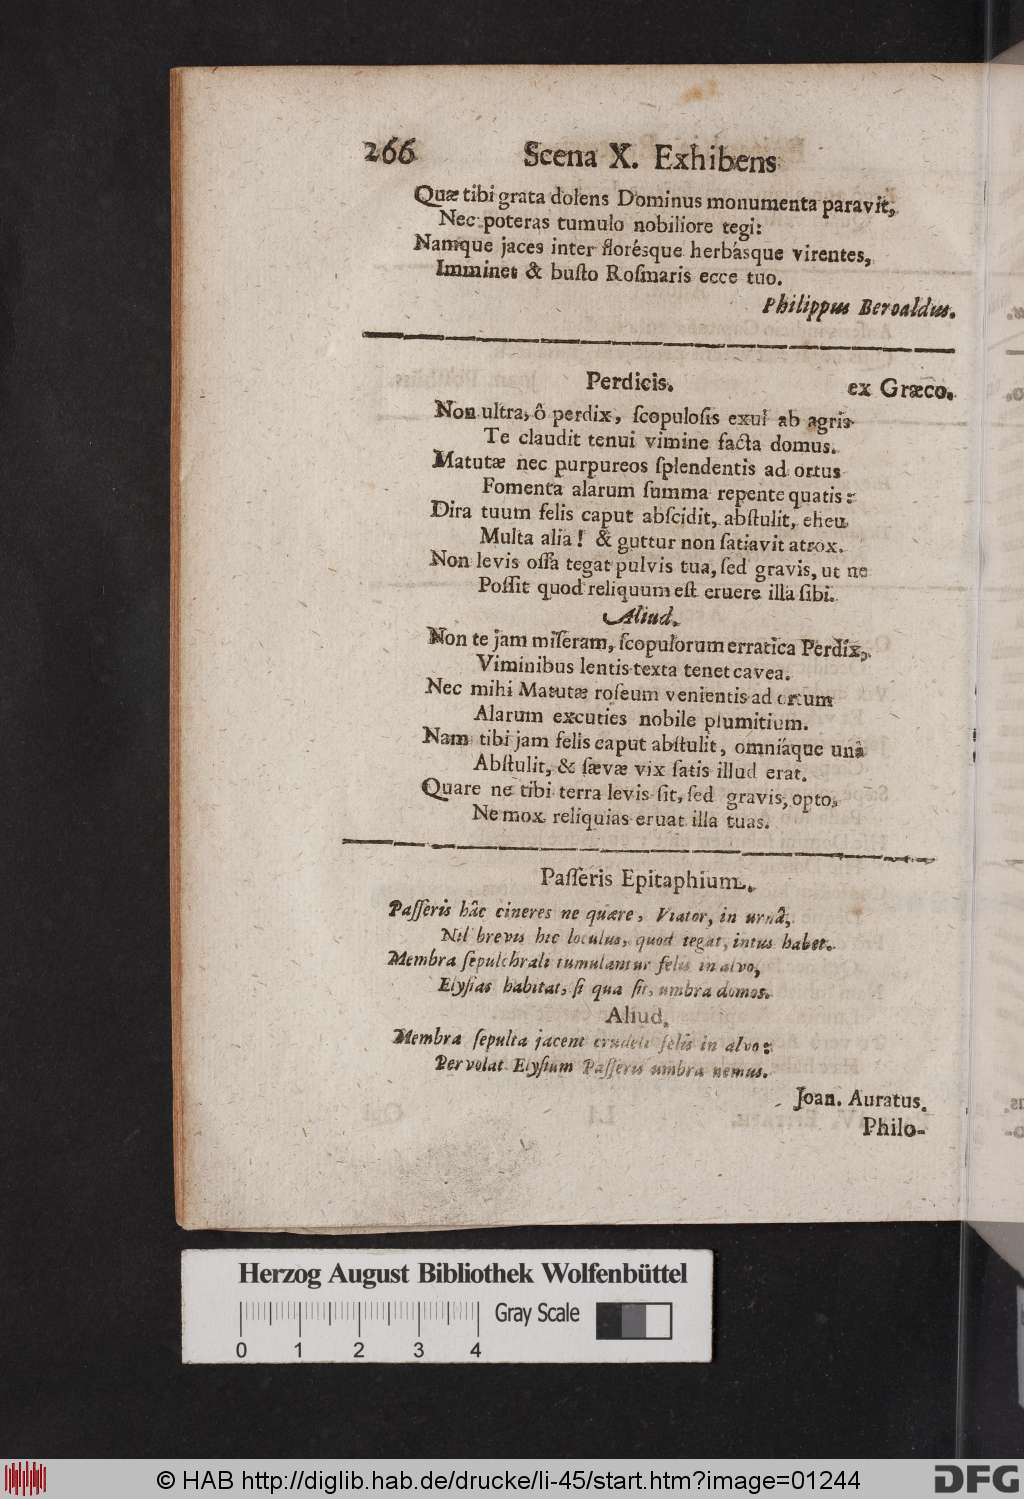 266 Scena X. Exhibens
Quæ tibi grata dolens Dominus monumenta paravit,
Nec poteras tumulo nobiliore tegi:
Namque jaces inter florésque herbásque virentes,
Imminet & busto Rosmaris ecce tuo.
Philippus Beroaldus.
Perdicis. ex Græco.
Non ultra, ô perdix, scopulosis exul ab agris
Te claudit tenui vimine facta domus.
Matutæ nec purpureos splendentis ad ortus
Fomenta alarum summa repente quatis:
Dira tuum felis caput abscidit, abstulit, eheu
Multa alia! & guttur non satiavit atrox.
Non levis ossa tegat pulvis tua, sed gravis, ut ne
Possit quod reliquum est eruere illa sibi.
Aliud.
Non te jam miseram, scopulorum erratica Perdix,
Viminibus lentis texta tenet cavea.
Nec mihi Matutæ roseum venientis ad ortum
Alarum excuties nobile plumitium.
Nam tibi jam felis caput abstulit, omniáque unâ
Abstulit, & sævæ vix satis illud erat.
Quare ne tibi terra levis sit, sed gravis, opto,
Ne mox reliquias eruat illa tuas.
Passeris Epitaphium.
Passeris hâc cineres ne quære, Viator, in urnâ,
Nil brevis hic loculus, quod tegat, intus habet.
Membra sepulchrali tumulantur felis in alvo,
Elysias habitat, si qua sit, umbra domos.
Aliud.
Membra sepulta jacent crudeli felis in alvo:
Pervolat Elysium Passeris umbra nemus.
Joan. Auratus.
Philo-
Herzog August Bibliothek Wolfenbüttel
Gray Scale
0 1 2 3 4
© HAB http://diglib.hab.de/drucke/li-45/start.htm?image=01244
DFG